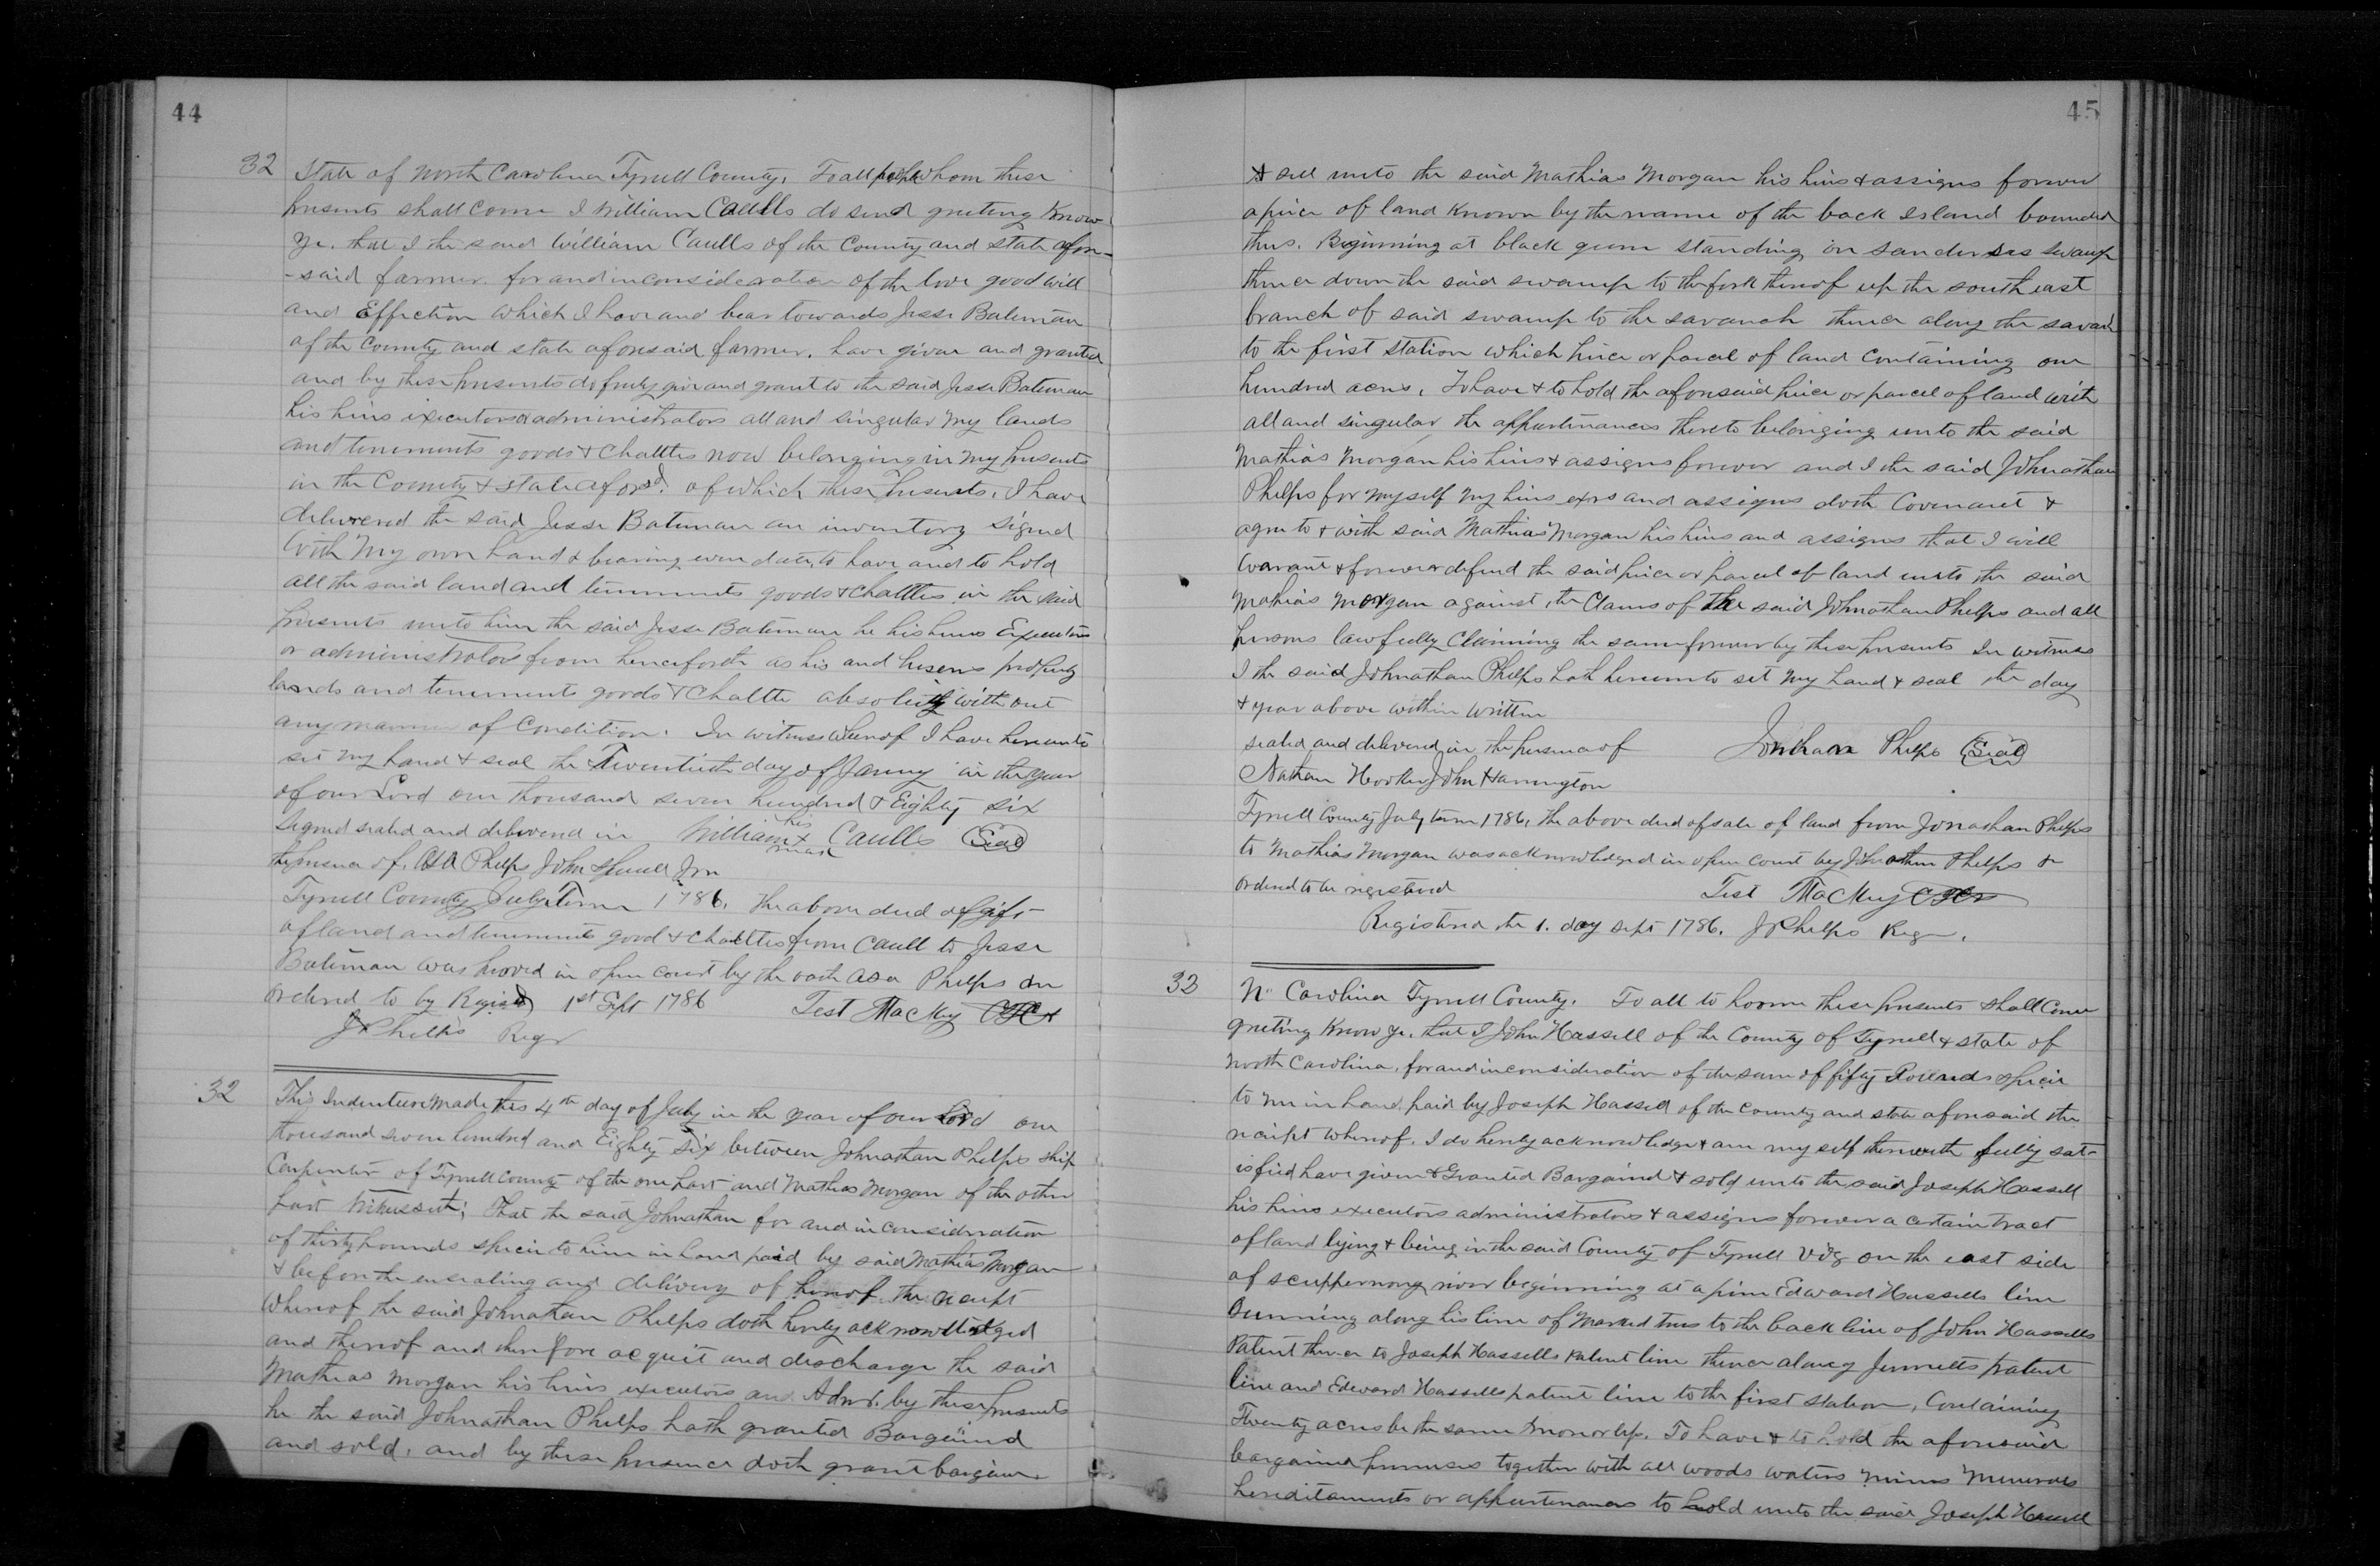 44
32 State of North Carolina Tyrrell County. To all people whom these
presents shall come I William Caulls do send greting Know
ye. that I the said William Caulls of the County and state afore-
-said farmer. for and in consideration of the love good will
and Effection which I have and bear towards Jesse Bateman
of the County and state aforesaid farmer. have given and granted
and by these presents do freely give and grant to the said Jesse Bateman
his heirs executors & administrators all and singular my lands
and tenements goods & Chattles now belonging in my presents
in the County & state aforsd. of which these presents, I have
delivered the said Jesse Bateman an inventory signed
with my own hand & bearing even date, to have and to hold
all the said land and tenements goods & chattles in the said
presents unto him the said Jesse Bateman he his heirs Executors
or administrators from henceforth as his and propety
lands and tenements goods & Chattle absolutly with out
any manner of Condition. In witness whereof I have hereunto
set my hand & seal the Twentieth day of Janny in the year
of our Lord one thousand seven hundred & Eighty six
Signed sealed and delivered in William his x mark Caulls (Seal)
the presence of. Asa Phelps John Jnr
Tyrrell County July Term 1786. The above deed of gift
of land and tenements good & chattles from Caull to Jesse
Bateman was proved in open court by the oath Asa Phelps on
ordered to by Registd 1st Sept 1786 Test MacKey CTC
J Phelps Regr
32 This Indenture made this 4th day of July in the year of our Lord one
thousand seven hundred and Eighty six between Johnathan Phelps ship
Carpenter of Tyrrell County of the one part and Mathias Morgan of the other
part Witnesseth; That the said Johnathan for and in consideration
of thirty pounds specie to him in hand paid by said Mathias Morgan
& before the ensealing and delivery of hereof the receipt
whereof the said Johnathan Phelps doth hereby acknowledged
and thereof and therefore acquit and discharge the said
Mathias Morgan his heirs executors and Admr. by these presents
he the said Johnathan Phelps hath granted Bargained
and sold, and by these presence doth grant bargain
45
& sell unto the said Mathias Morgan his heirs & assigns forever
a piece of land known by the name of the back Island bounded
thus. Beginning at black gum standing in swamp
thence down the said swamp to the fork thereof up the south east
branch of said swamp to the savanah thence along the savanh
to the first station which piece or parcel of land containing one
hundred acres, To have & to hold the aforesaid piece or parcel of land with
all and singular the appurtinances thereto belonging unto the said
Mathias Morgan his heirs & assigns forever and I the said Johnathan
Phelps for myself my heirs exrs and assigns doth Covenant &
agree to & with said Mathias Morgan his heirs and assigns that I will
warant & forever defend the said piece or parcel of land unto the said
Mathias Morgan against, the Clams of the said Johnathan Phelps and all
persons lawfully Claiming the same forever by these presents In witness
I the said Johnathan Phelps hath hereunto set my hand & seal the day
& year above within written
sealed and delivered in the presence of Jonthan Phelps (Seal)
Nathan Hooker John Harrington
Tyrrell County July term 1786, the above deed of sale of land from Jonathan Phelps
to Mathias Morgan was acknowledged in open court by Johnathan Phelps &
ordered to be registered Test MacKey CTC
Registered the 1. day Sept 1786. J Phelps Regr.
32 No Carolina Tyrrell County. To all to whom these presents shall Come
greeting Know ye, that I John Hassell of the County of Tyrrell & state of
North Carolina, for and in consideration of the sum of fifty Pounds specie
to me in hand paid by Joseph Hassell of the County and state aforesaid the
receipt whereof. I do hereby acknowledge & am my self therewith fully sat-
isfied have given & Granted Bargained & sold unto the said Joseph Hassell
his heirs executors administrators & assigns forever a certain tract
of land lying & being in the said County of Tyrrell Vidz on the east side
of scuppernong river beginning at a pine Edward Hassells line
Running along his line of marked trees to the back line of John Hassells
Patent thence to Joseph Hassells patent line thence along Jennetts patent
line and Edward Hassells patent line to the first station, Containing
Twenty acres be the same more or less. To have & to hold the aforesaid
bargained premises together with all woods waters mines minerals
hereditaments or appurtenances to hold unto the said Joseph Hassell